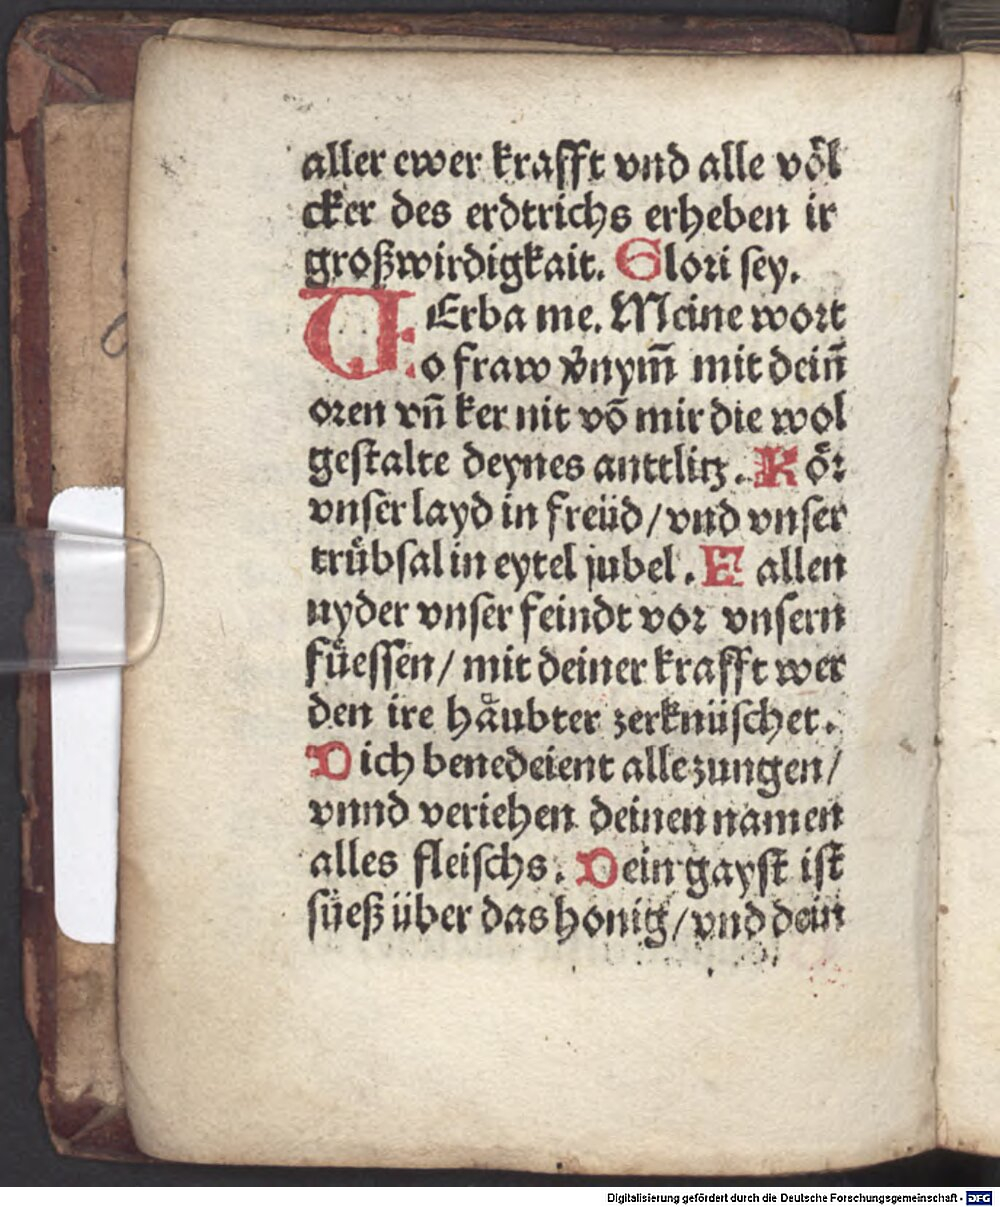 aller ewer krafft vnd alle võl
cker des erdtrichs erheben ir
großwirdigkait. Glori sey.
VErba me. Meine wort
o fraw ṽnym̃ mit dein̄
oren vn̄ ker nit võ mir die wol
gestalte deynes anttlitz. Kör
vnser layd in freüd/vnd vnser
trůbsal in eytel jubel. E allen
nyder vnser feindt vor vnsern
fůessen/mit deiner krafft wer
den ire håubter zerknüschet.
Dich benedeient alle zungen/
vnnd veriehen deinen namen
alles fleischs. Dein gayst ist
süeß über das honig/vnd dein
Digitalisierung gefördert durch die Deutsche Forschungsgemeinschaft - DFG